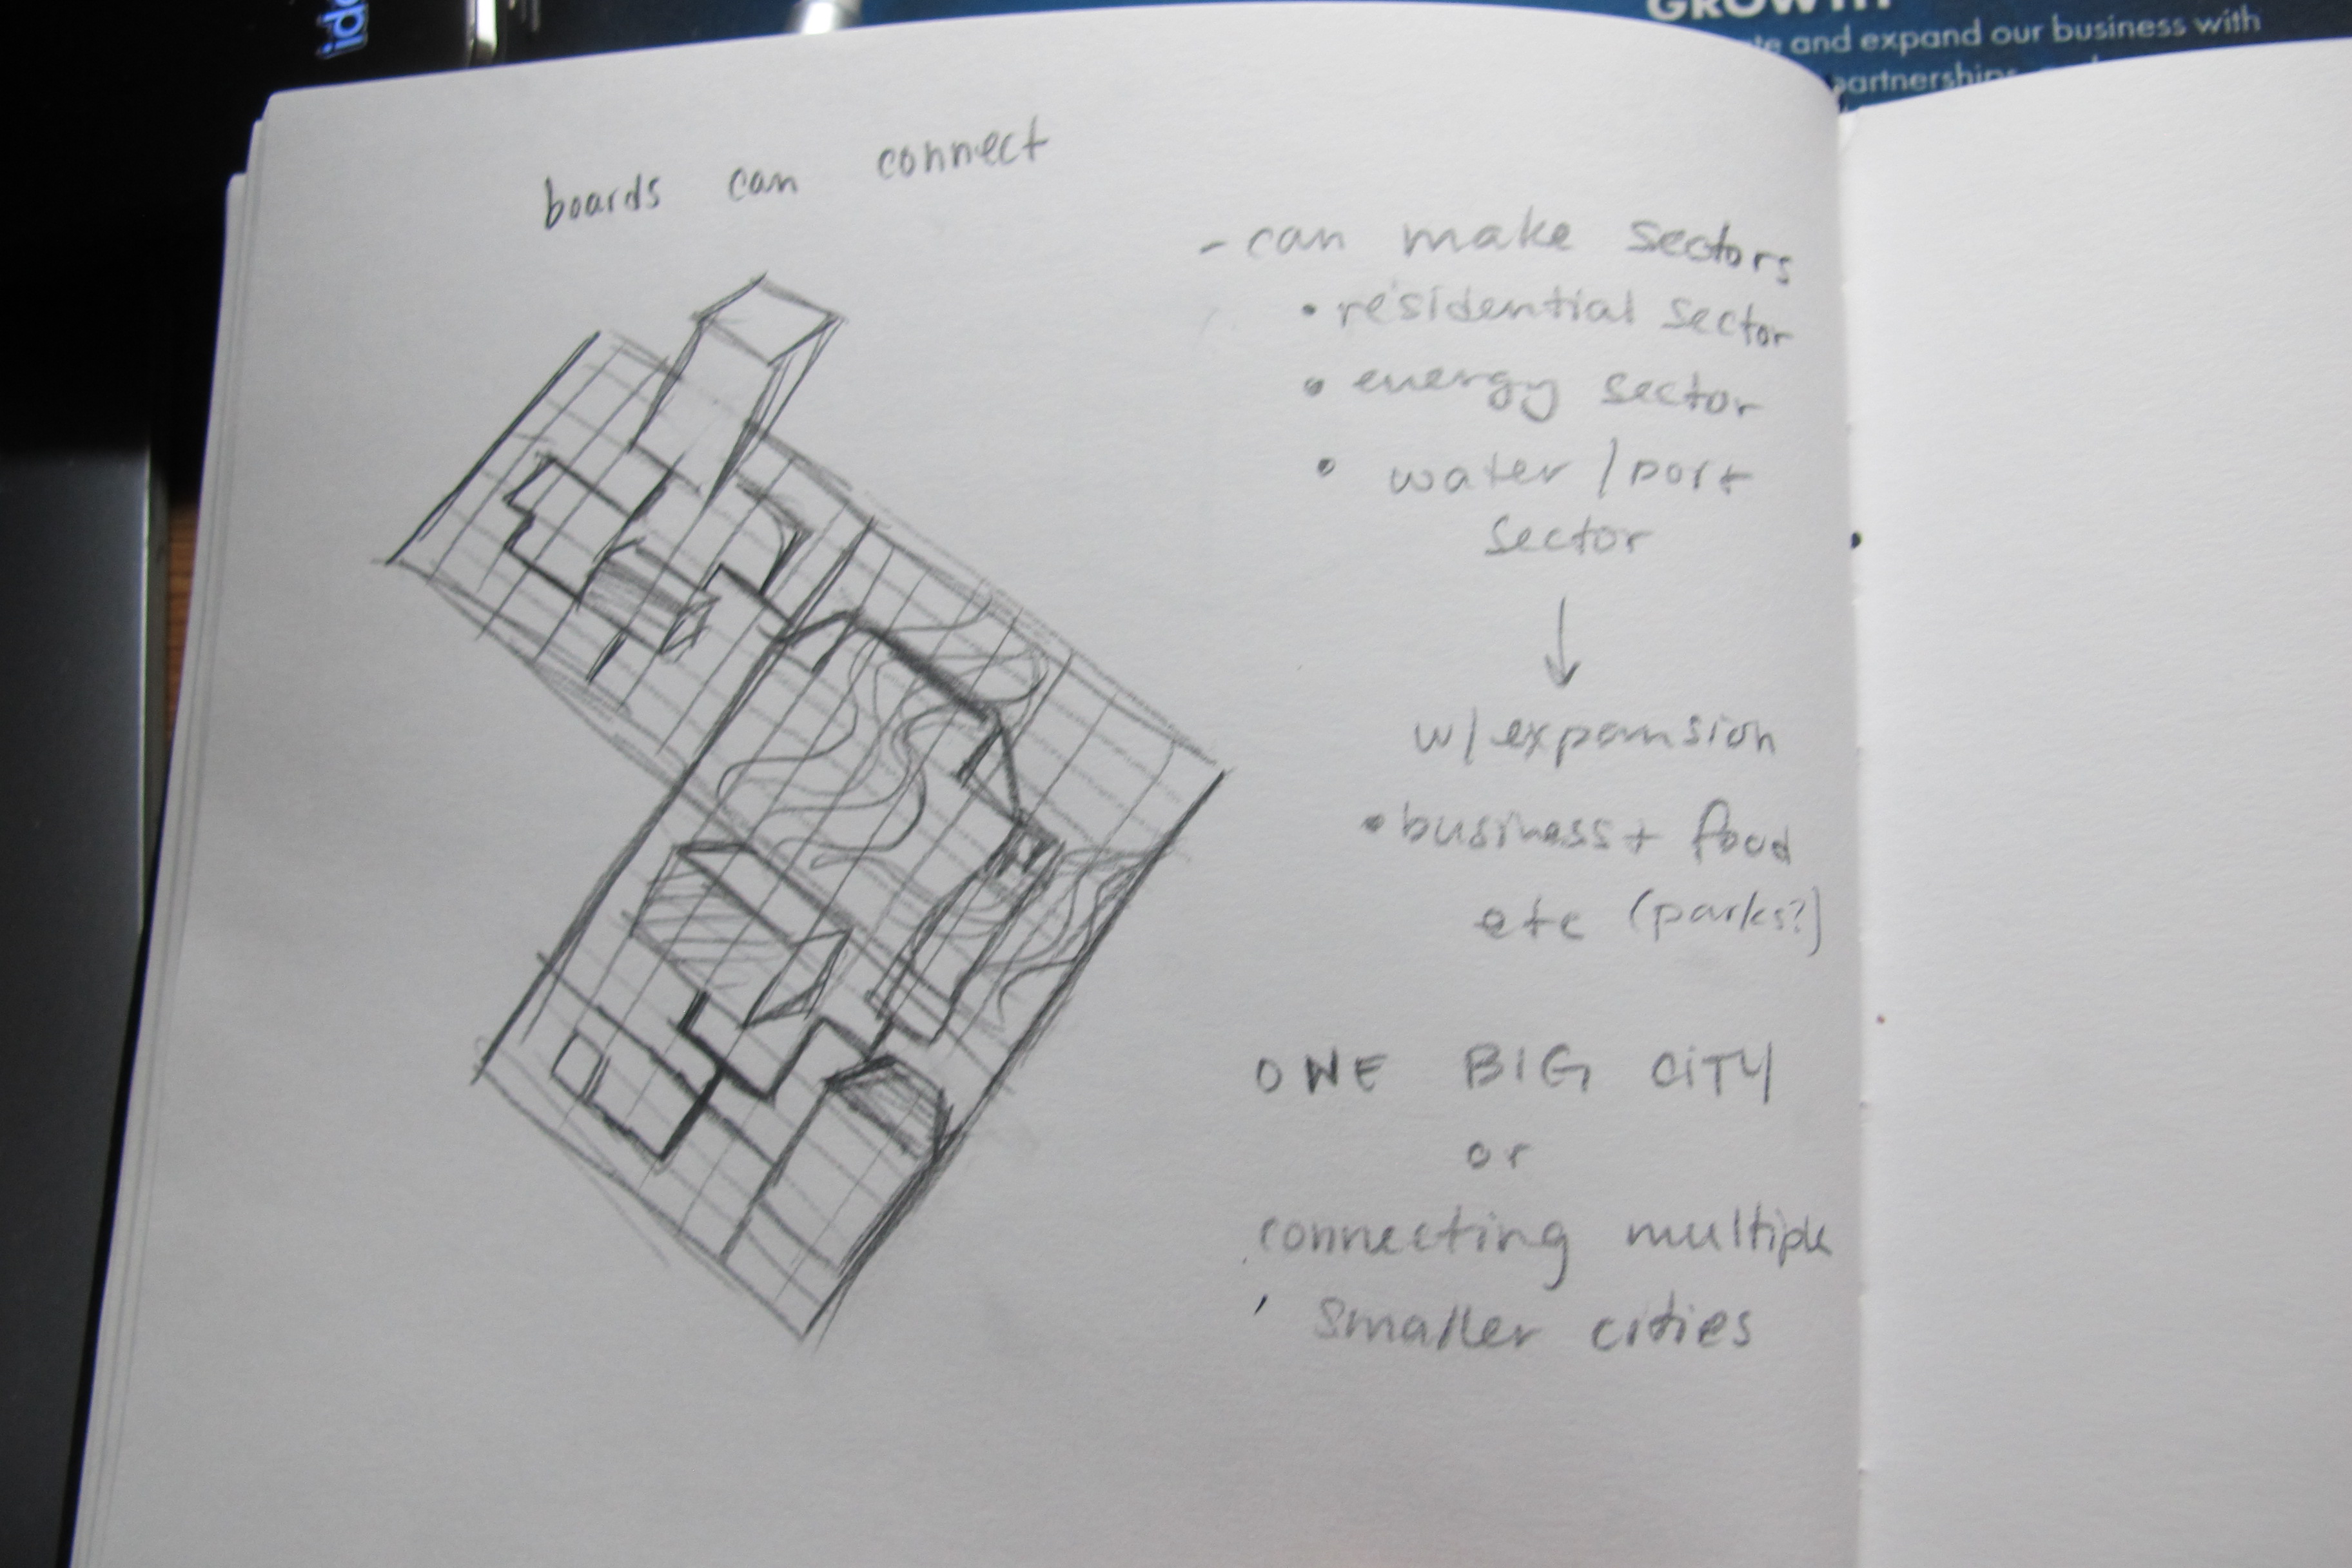 GROWTH
and expand our business with
partnerships
boards can connect
- can make sectors
• residential sector
• energy sector
• water / port
sector
↓
w/ expansion
• business + food
etc (parks?)
ONE BIG CITY
or
connecting multiple
smaller cities